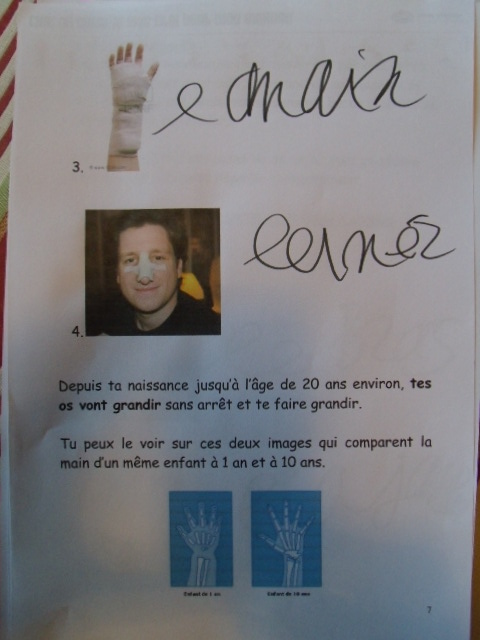 3. e main
4. le nez
Depuis ta naissance jusqu'à l'âge de 20 ans environ, tes
os vont grandir sans arrêt et te faire grandir.
Tu peux le voir sur ces deux images qui comparent la
main d'un même enfant à 1 an et à 10 ans.
Enfant de 1 an Enfant de 10 ans
7